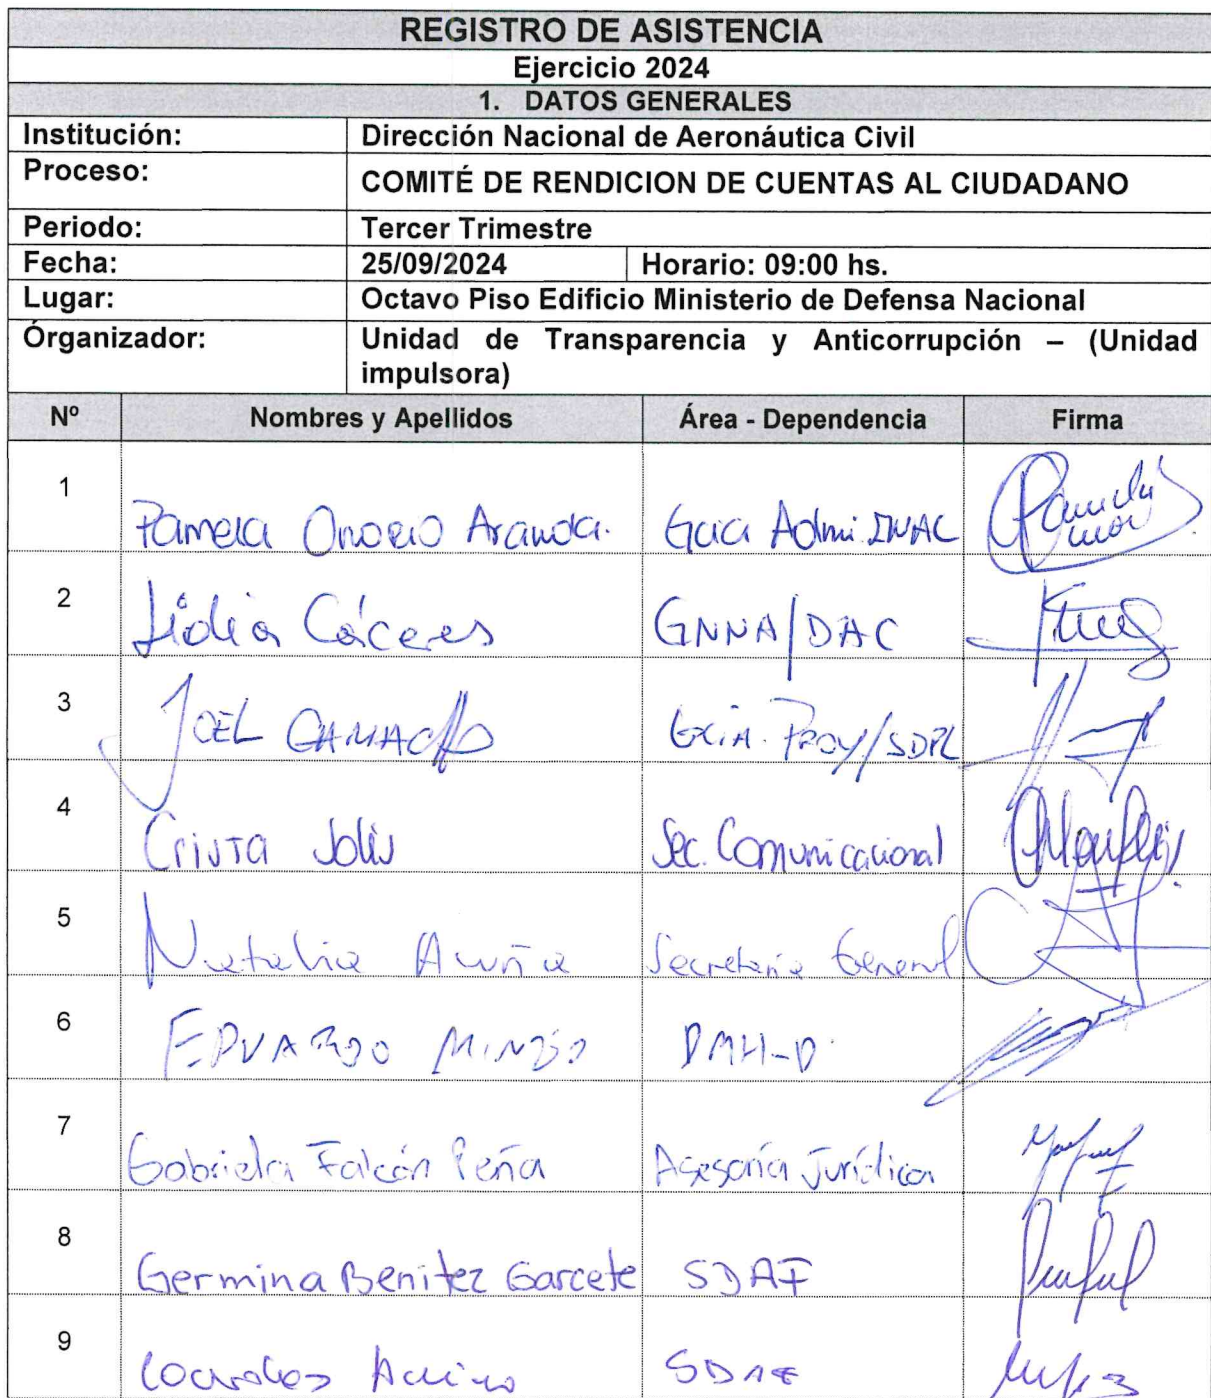 REGISTRO DE ASISTENCIA
Ejercicio 2024
1. DATOS GENERALES
Institución: Dirección Nacional de Aeronáutica Civil
Proceso: COMITÉ DE RENDICION DE CUENTAS AL CIUDADANO
Periodo: Tercer Trimestre
Fecha: 25/09/2024 Horario: 09:00 hs.
Lugar: Octavo Piso Edificio Ministerio de Defensa Nacional
Órganizador: Unidad de Transparencia y Anticorrupción – (Unidad
impulsora)
Nº Nombres y Apellidos Área - Dependencia Firma
1 Pamela Onorio Aranda. Gcia Admi. INAC
2 Lidia Cáceres GNNA/DAC
3 JOEL CAMACHO GCIA. PROY/SDPL
4 Crista Solis Sec. Comunicacional
5 Natalia Acuña Secretaría General
6 EDUARDO DMH-D
7 Gabriela Falcón Peña Asesoría Jurídica
8 Germina Benitez Garcete SDAF
9 Lourdes SDAF